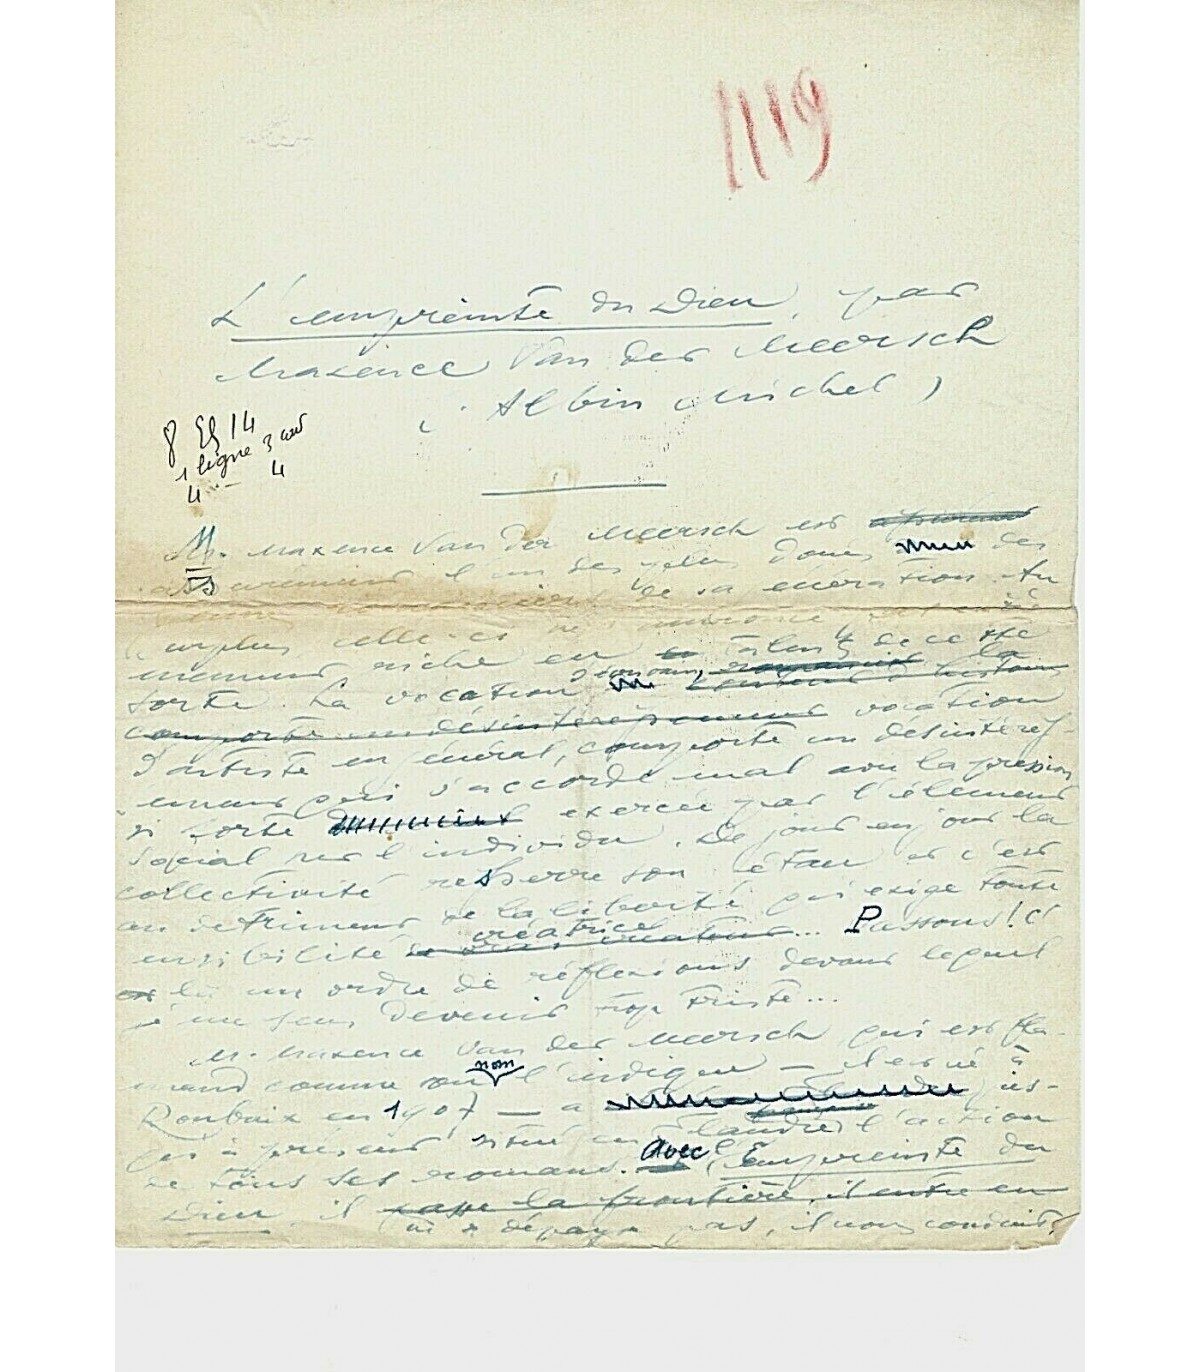 1119
L'empreinte du Dieu, par
Maxence Van der Meersch
(Albin Michel)
8 Elz 14
1 ligne 3 cent
4 4
M. Maxence Van der Meersch est
assurément l'un des plus doués des
de sa génération. Au
surplus celle-ci ne
riche en talents de cette
sorte. La vocation d'écrivain, la
comporte un désintéressement vocation
d'artiste en général, comporte un désintéres-
sement qui s'accorde mal avec la pression
si forte exercée par l'élément
social sur l'individu. De jour en jour la
collectivité resserre son étau et c'est
au detriment de la liberté qui exige toute
sensibilité créatrice... Passons! C'
est là un ordre de réflexions devant lequel
je me sens devenir trop triste...
M. Maxence Van der Meersch qui est fla-
mand comme son nom l'indique — il est né à
Roubaix en 1907 — a jus-
qu'à présent situé en Flandre l'action
de tous ses romans. Avec l'Empreinte du
Dieu, il passe la frontière, il entre en
ne dépayse pas, il nous conduit